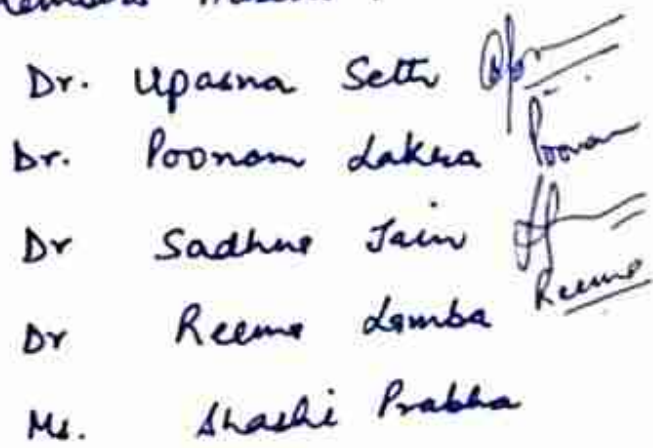 Dr. Upasna Seth
Dr. Poonam Lakra Poonam
Dr Sadhna Jain
Dr Reema Lamba Reema
Ms. Shashi Prabha